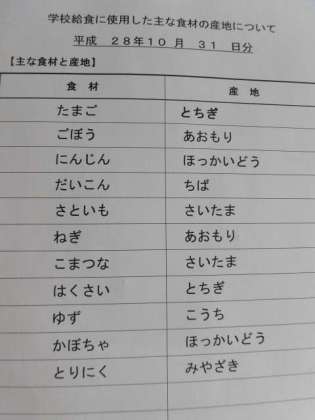 学校給食に使用した主な食材の産地について
平成 28年10 月 31 日分
【主な食材と産地】
食 材 産 地
たまご とちぎ
ごぼう あおもり
にんじん ほっかいどう
だいこん ちば
さといも さいたま
ねぎ あおもり
こまつな さいたま
はくさい とちぎ
ゆず こうち
かぼちゃ ほっかいどう
とりにく みやざき